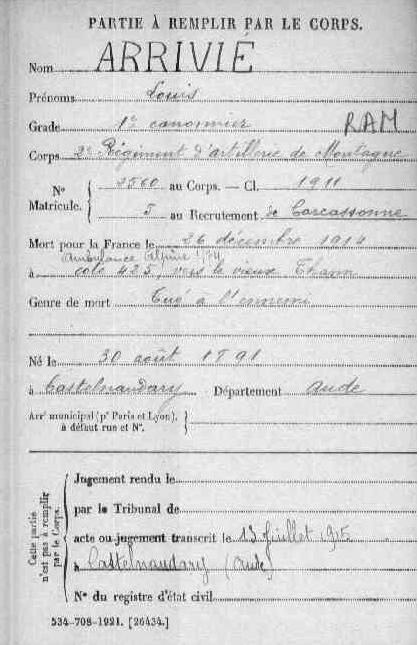 PARTIE À REMPLIR PAR LE CORPS.
Nom ARRIVIÉ
Prénoms Louis
Grade 1r canonnier RAM
Corps 2e Régiment d'artillerie de Montagne
N° Matricule. { 2560 au Corps. — Cl. 1911
5 au Recrutement de Carcassonne
Mort pour la France le 26 décembre 1914
Ambulance Alpine
à cote 425, vers le vieux Thann
Genre de mort Tué à l'ennemi
Né le 30 août 1891
à Castelnaudary Département Aude
Arrt municipal (pr Paris et Lyon), à défaut rue et N°. }
Cette partie n'est pas à remplir par le Corps.
Jugement rendu le
par le Tribunal de
acte ou jugement transcrit le 13 juillet 1915
à Castelnaudary (Aude)
N° du registre d'état civil
534-708-1921. [26434.]